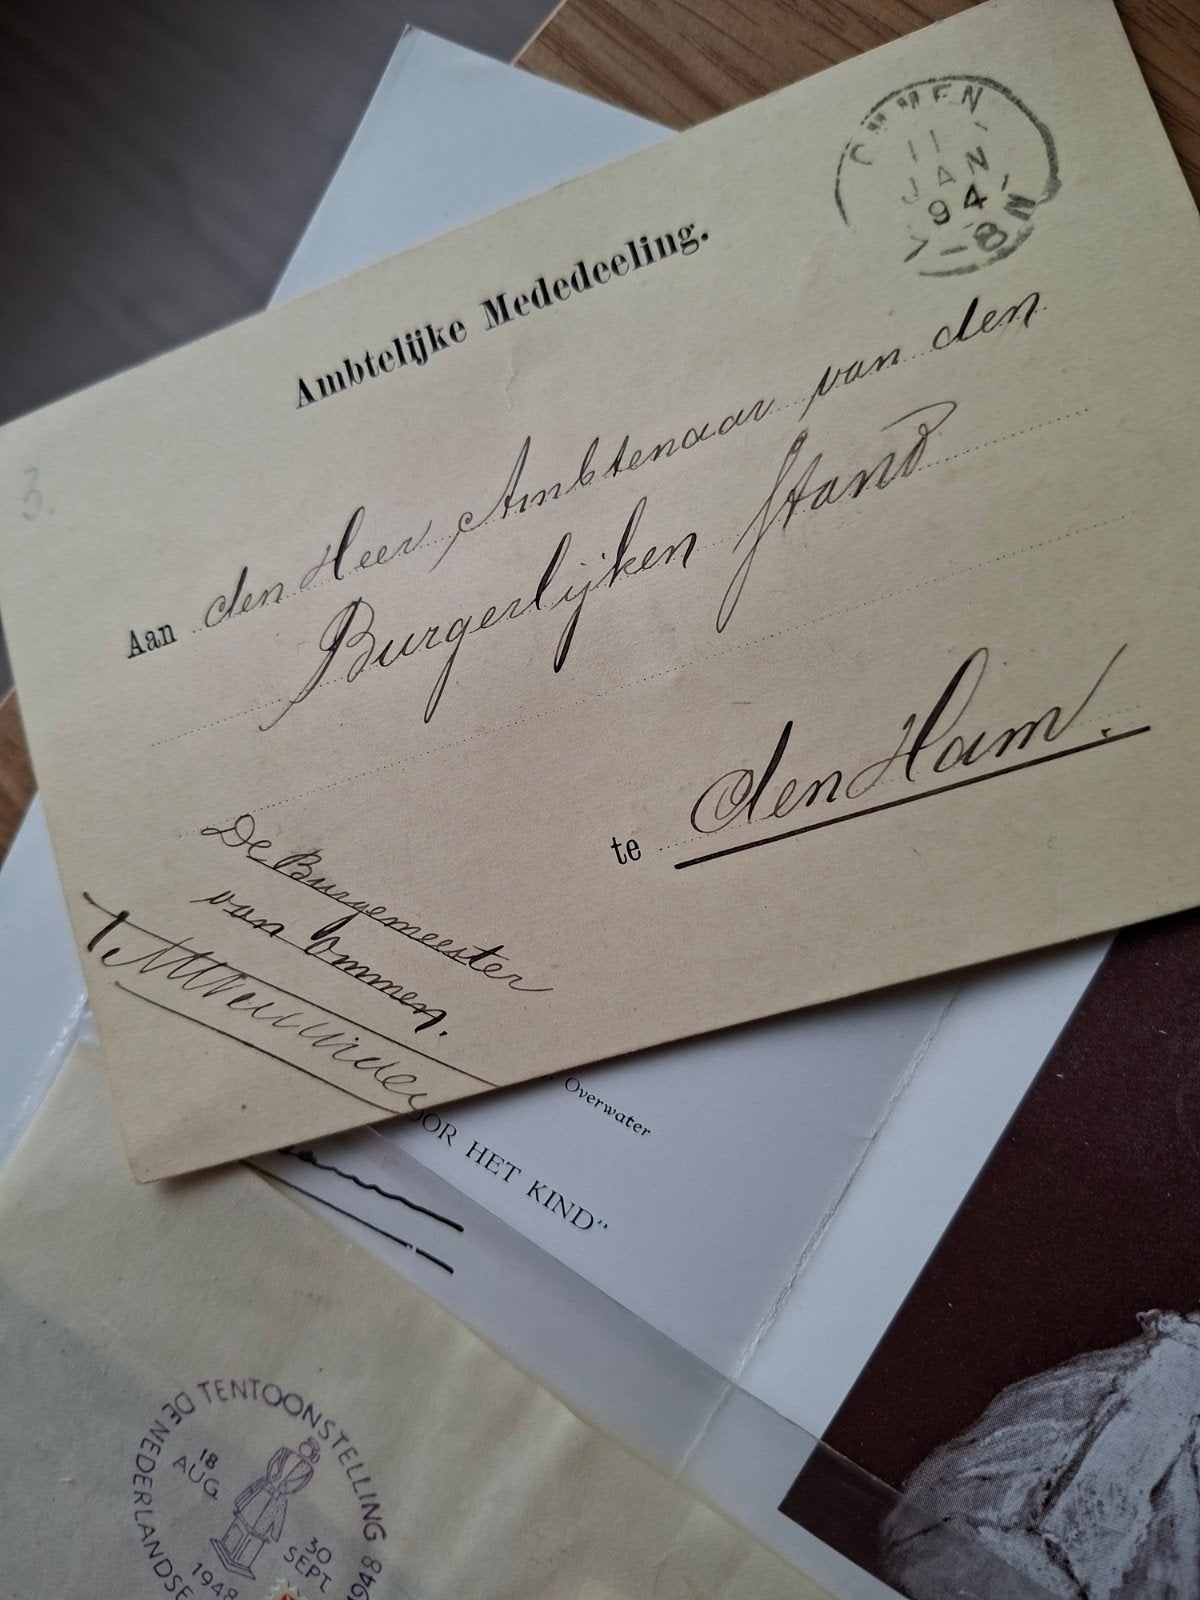 OMMEN
11
JAN
94
7-8N
Ambtelijke Mededeeling.
3.
Aan den Heer Ambtenaar van den
Burgerlijken Stand
te den Ham.
De Burgemeester
van Ommen.
Overwater
OOR HET KIND"
DE NEDERLANDSE
TENTOONSTELLING 1948
18
AUG.
30
SEPT.
1948